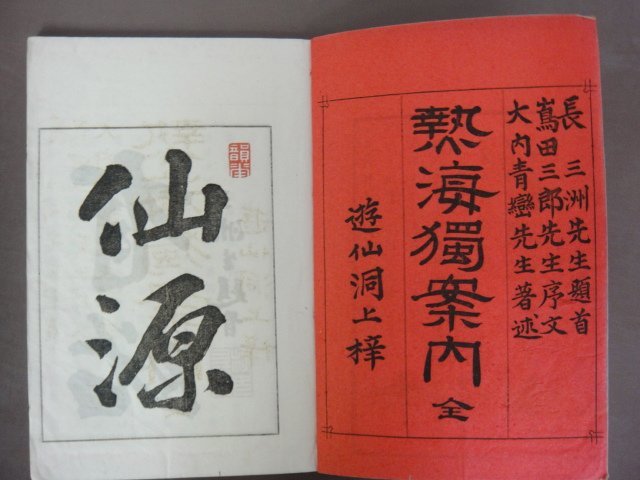 長 三洲先生題首
嶌田三郎先生序文
大内青巒先生著述
熱海獨案内 全
遊仙洞上梓
仙源